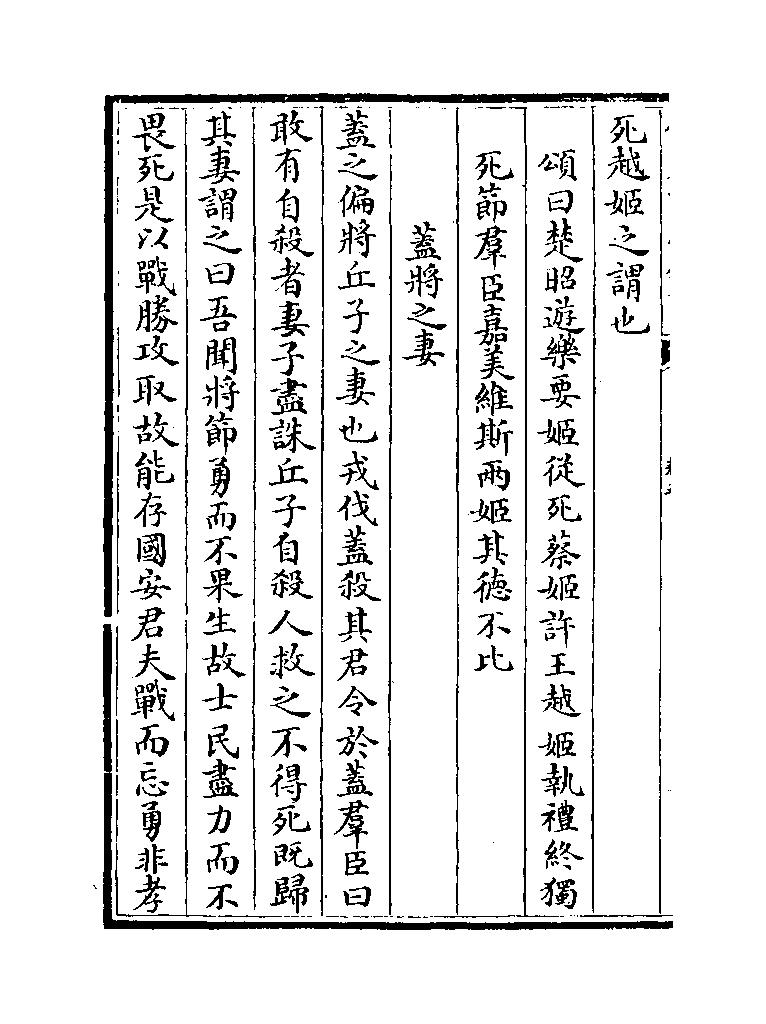 死越姬之謂也
頌曰楚昭遊樂要姬從死蔡姬許王越姬執禮終獨
死節羣臣嘉美維斯兩姬其德不比
蓋將之妻
蓋之偏將丘子之妻也戎伐蓋殺其君令於蓋羣臣曰
敢有自殺者妻子盡誅丘子自殺人救之不得死既歸
其妻謂之曰吾聞將節勇而不果生故士民盡力而不
畏死是以戰勝攻取故能存國安君夫戰而忘勇非孝